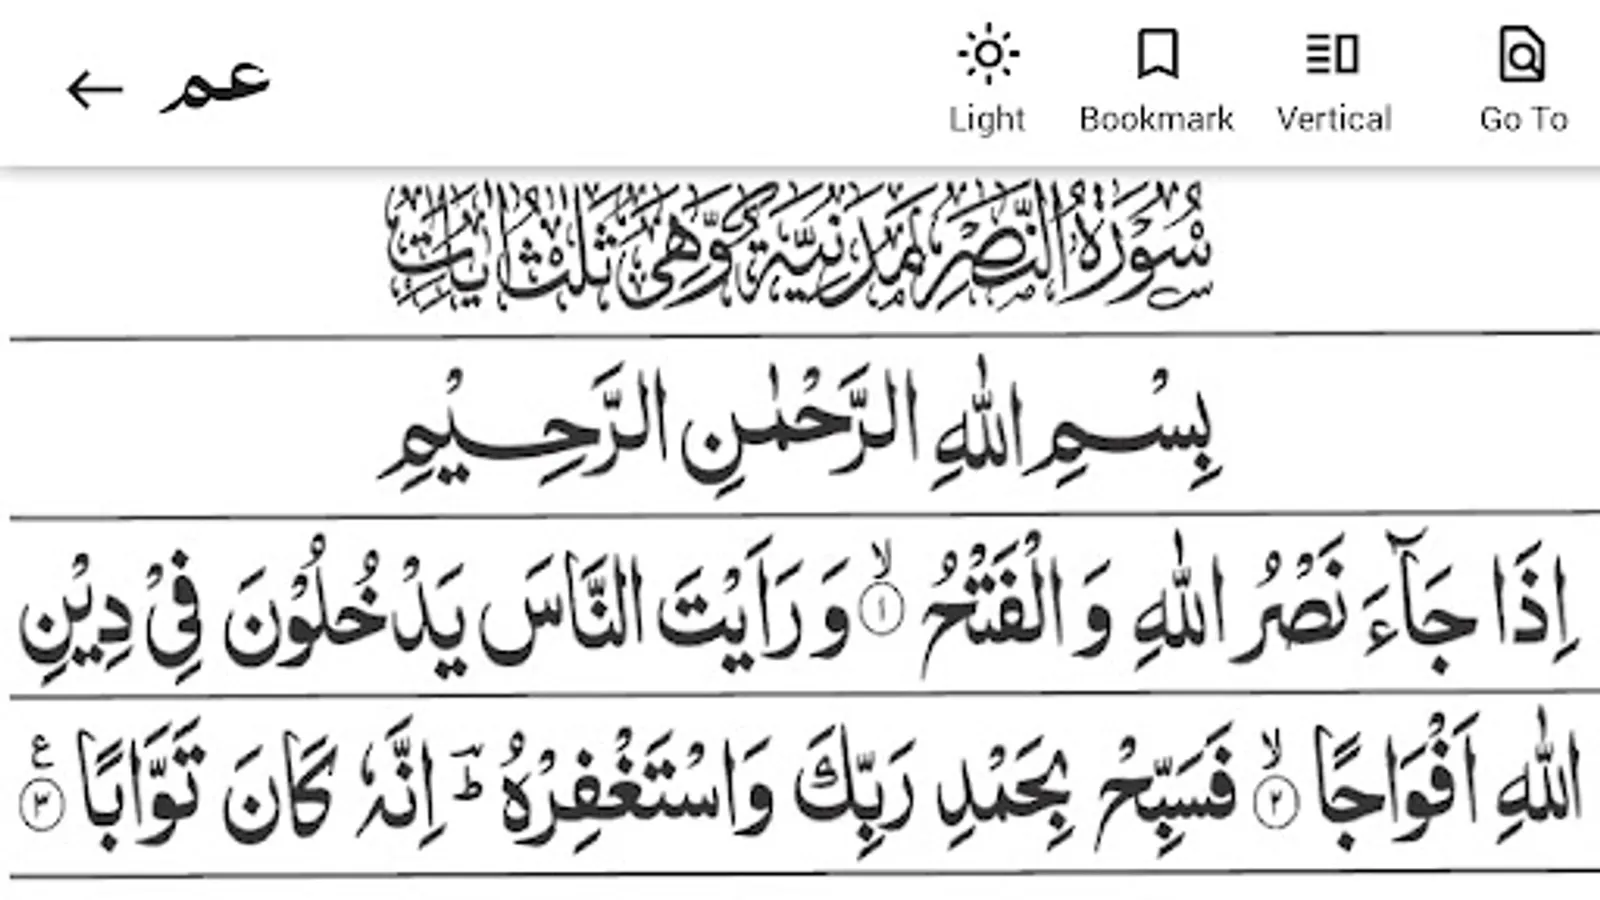 ← عم
Light Bookmark Vertical Go To
سُوْرَةُ النَّصْرِ مَدَنِيَّةٌ وَّهِيَ ثَلٰثُ اٰيَاتٍ
بِسْمِ اللّٰهِ الرَّحْمٰنِ الرَّحِيْمِ
اِذَا جَآءَ نَصْرُ اللّٰهِ وَ الْفَتْحُ ۙ﴿۱﴾ وَ رَاَيْتَ النَّاسَ يَدْخُلُوْنَ فِيْ دِيْنِ
اللّٰهِ اَفْوَاجًا ۙ﴿۲﴾ فَسَبِّحْ بِحَمْدِ رَبِّكَ وَاسْتَغْفِرْهُ ؕ اِنَّهٗ كَانَ تَوَّابًا ﴿۳﴾ ع